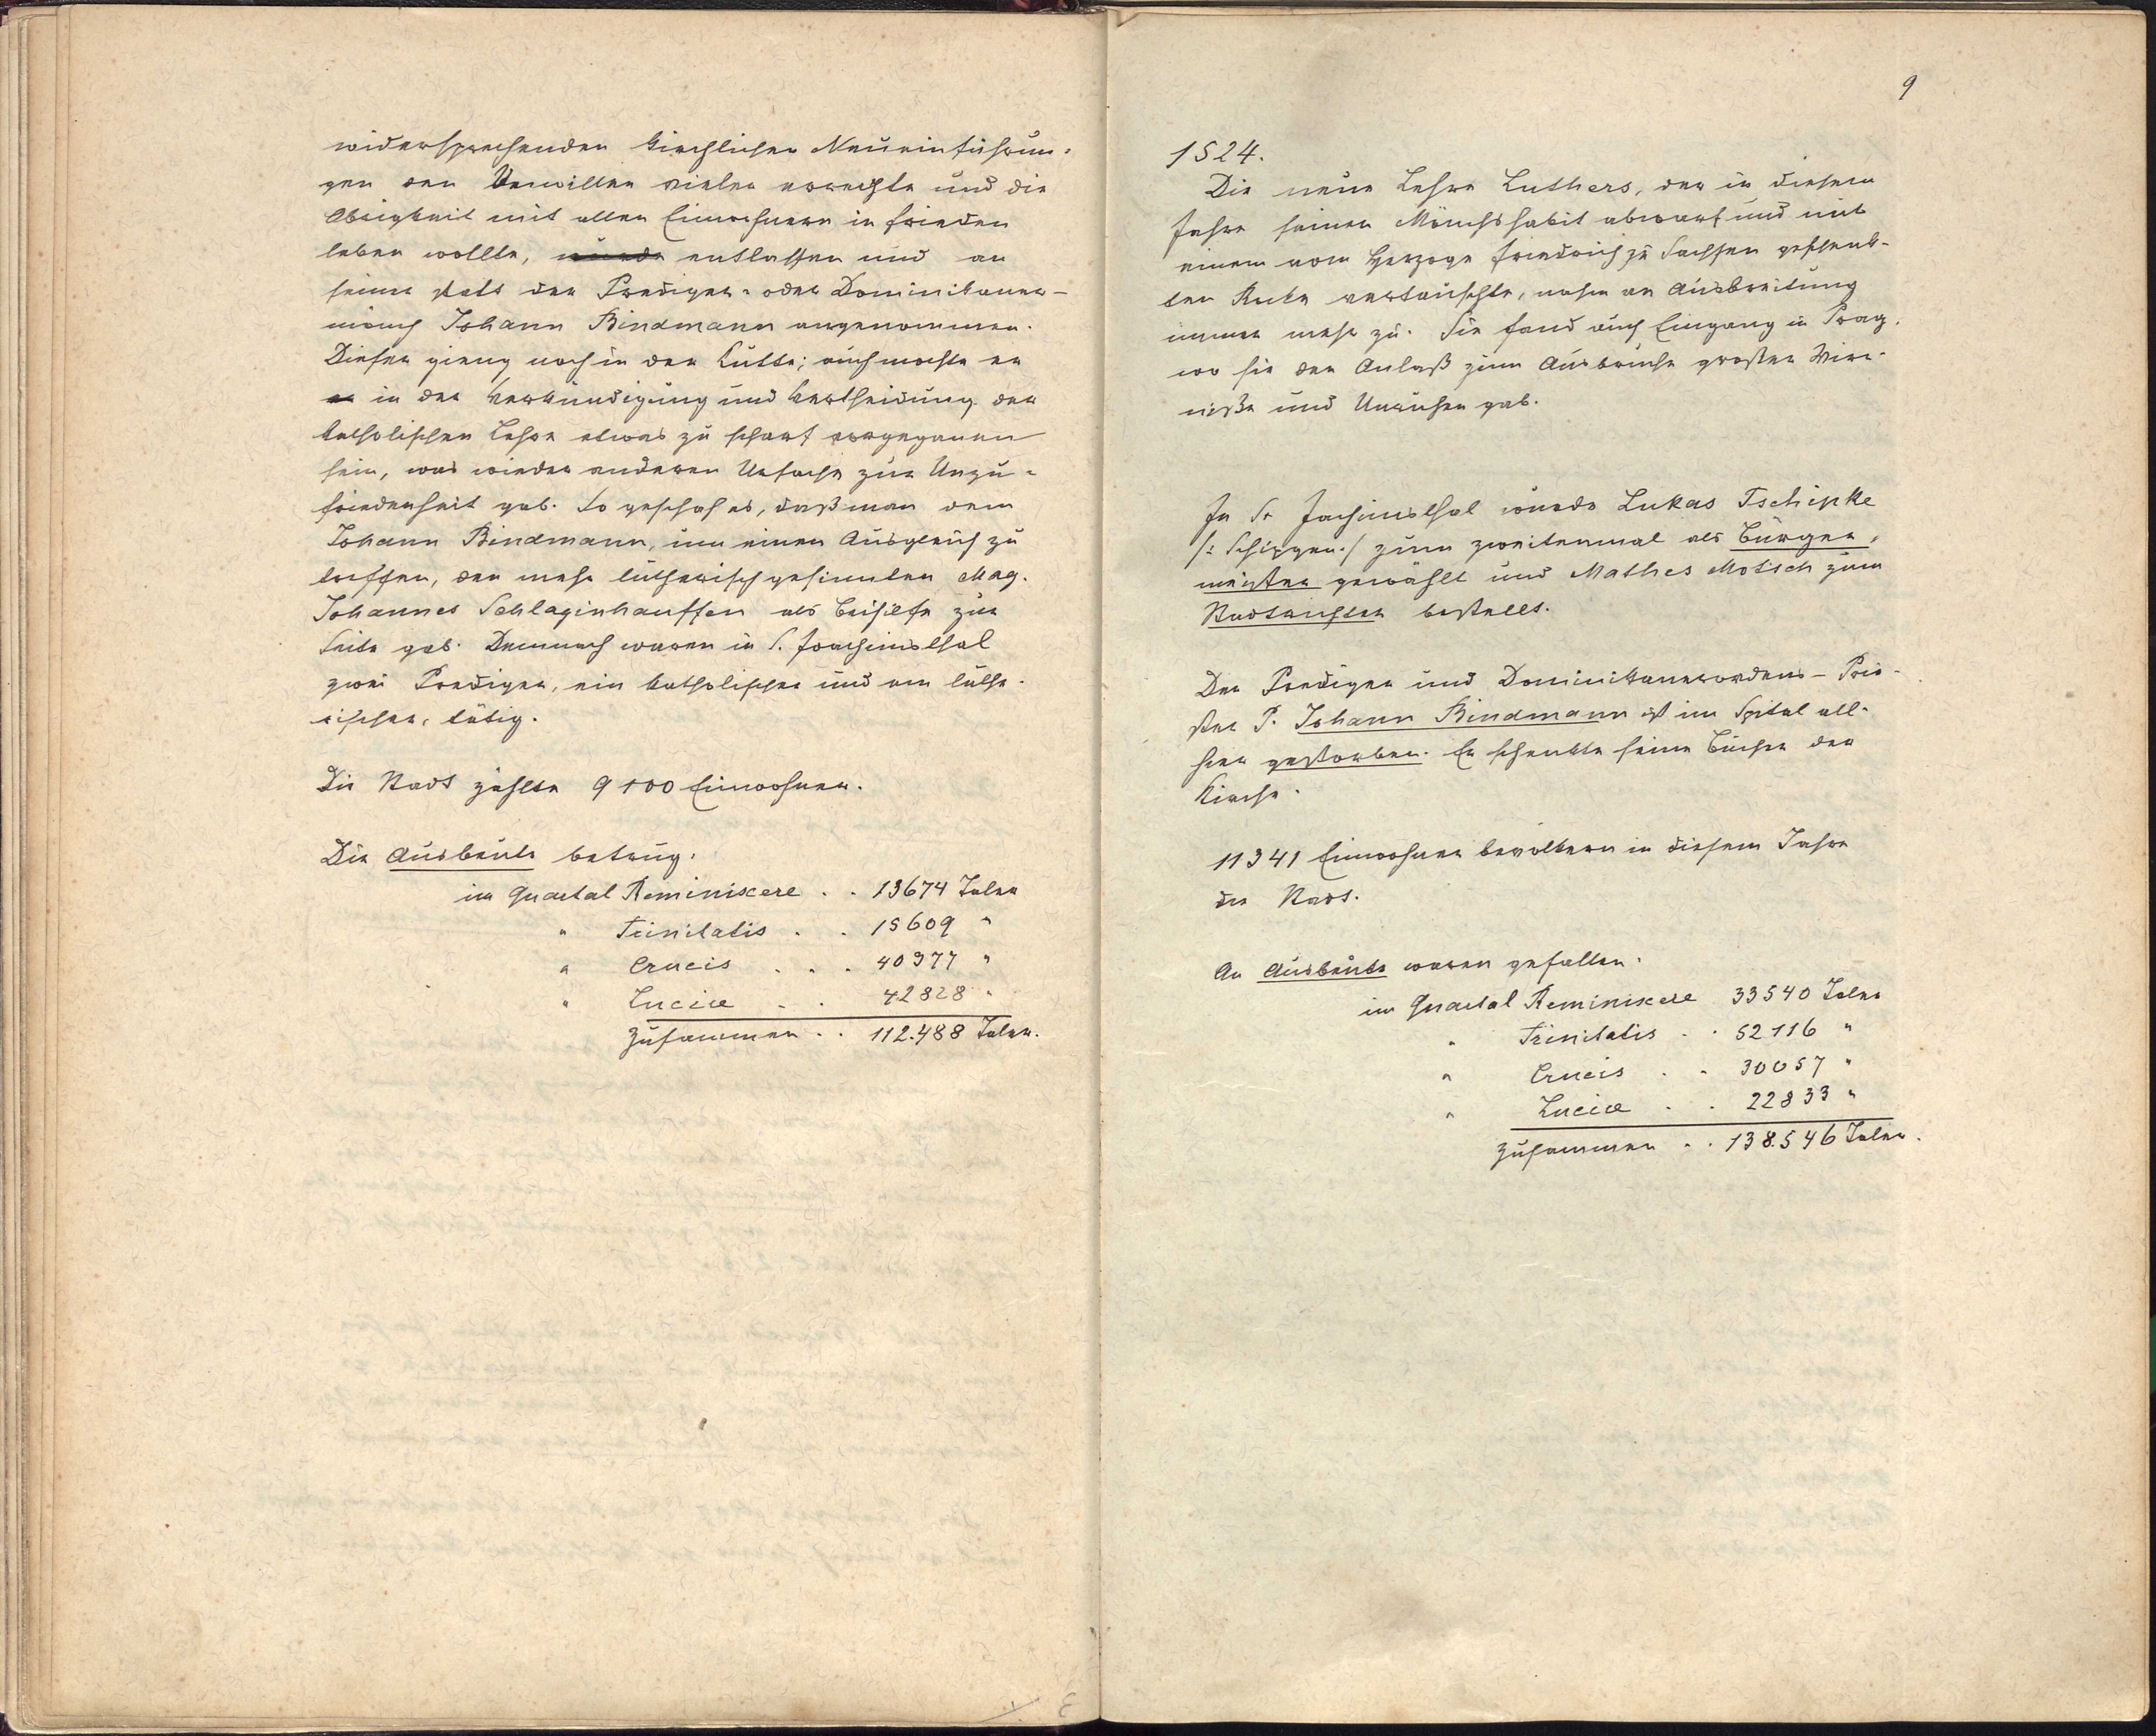 widersprechenden kirchlichen Neueinführun-
gen den Unwillen vieler erweckte und die
Obrigkeit mit allen Einwohnern in Frieden
leben wollte, wurde entlassen und an
seine statt der Prediger- oder Dominikaner-
mönch Johann Bindmann angenommen.
Dieser gieng noch in der Kutte; auch mochte er
er in der Verkündigung und Vertheidung der
katholischen Lehre etwas zu scharf vorgegangen
sein, was wieder anderen Ursache zur Unzu-
friedenheit gab. So geschah es, daß man dem
Johann Bindmann, um einen Ausgleich zu
treffen, den mehr lutherisch gesinnten Mag.
Johannes Schlaginhauffen als Beihilfe zur
Seite gab. Demnach waren in S. Joachimsthal
zwei Prediger, ein katholischer und ein luthe-
rischer, tätig.
Die Stadt zählte 9100 Einwohner.
Die Ausbeute betrug:
im Quartal Reminiscere . . 13674 Taler
" Trinitatis . . 15609 "
" Crucis . . . 40377 "
" Luciæ . . 42828 "
Zusammen . . 112.488 Taler.
9
1524.
Die neue Lehre Luthers, der in diesem
Jahre seinen Mönchshabit abwarf und mit
einem vom Herzoge Friedrich zu Sachsen geschenk-
ten Rocke vertauschte, nahm an Ausbreitung
immer mehr zu. Sie fand auch Eingang in Prag,
wo sie den Anlaß zum Ausbruche großer Wirr-
niße und Unruhen gab.
In St Joachimsthal wurde Lukas Tschipke
/: Schippen :/ zum zweitenmal als Bürger-
meister gewählt und Mathes Motsch zum
Stadtrichter bestellt.
Der Prediger und Dominikanerordens-Prie-
ster P. Johann Bindmann ist im Spital all-
hier gestorben. Er schenkte seine Bücher der
Kirche.
11341 Einwohner bevolkern in diesem Jahre
die Stadt.
An Ausbeute waren gefallen:
im Quartal Reminiscere 33540 Taler
" Trinitatis . . 52116 "
" Crucis . . 30057 "
" Luciæ . . 22833 "
Zusammen . . 138.546 Taler.